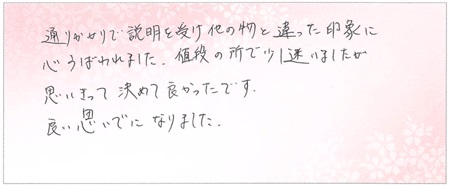 通りかかりで説明を受け他の物と違った印象に
心うばわれました。値段の所で少し迷いましたが
思いきって決めて良かったです。
良い思いでになりました。